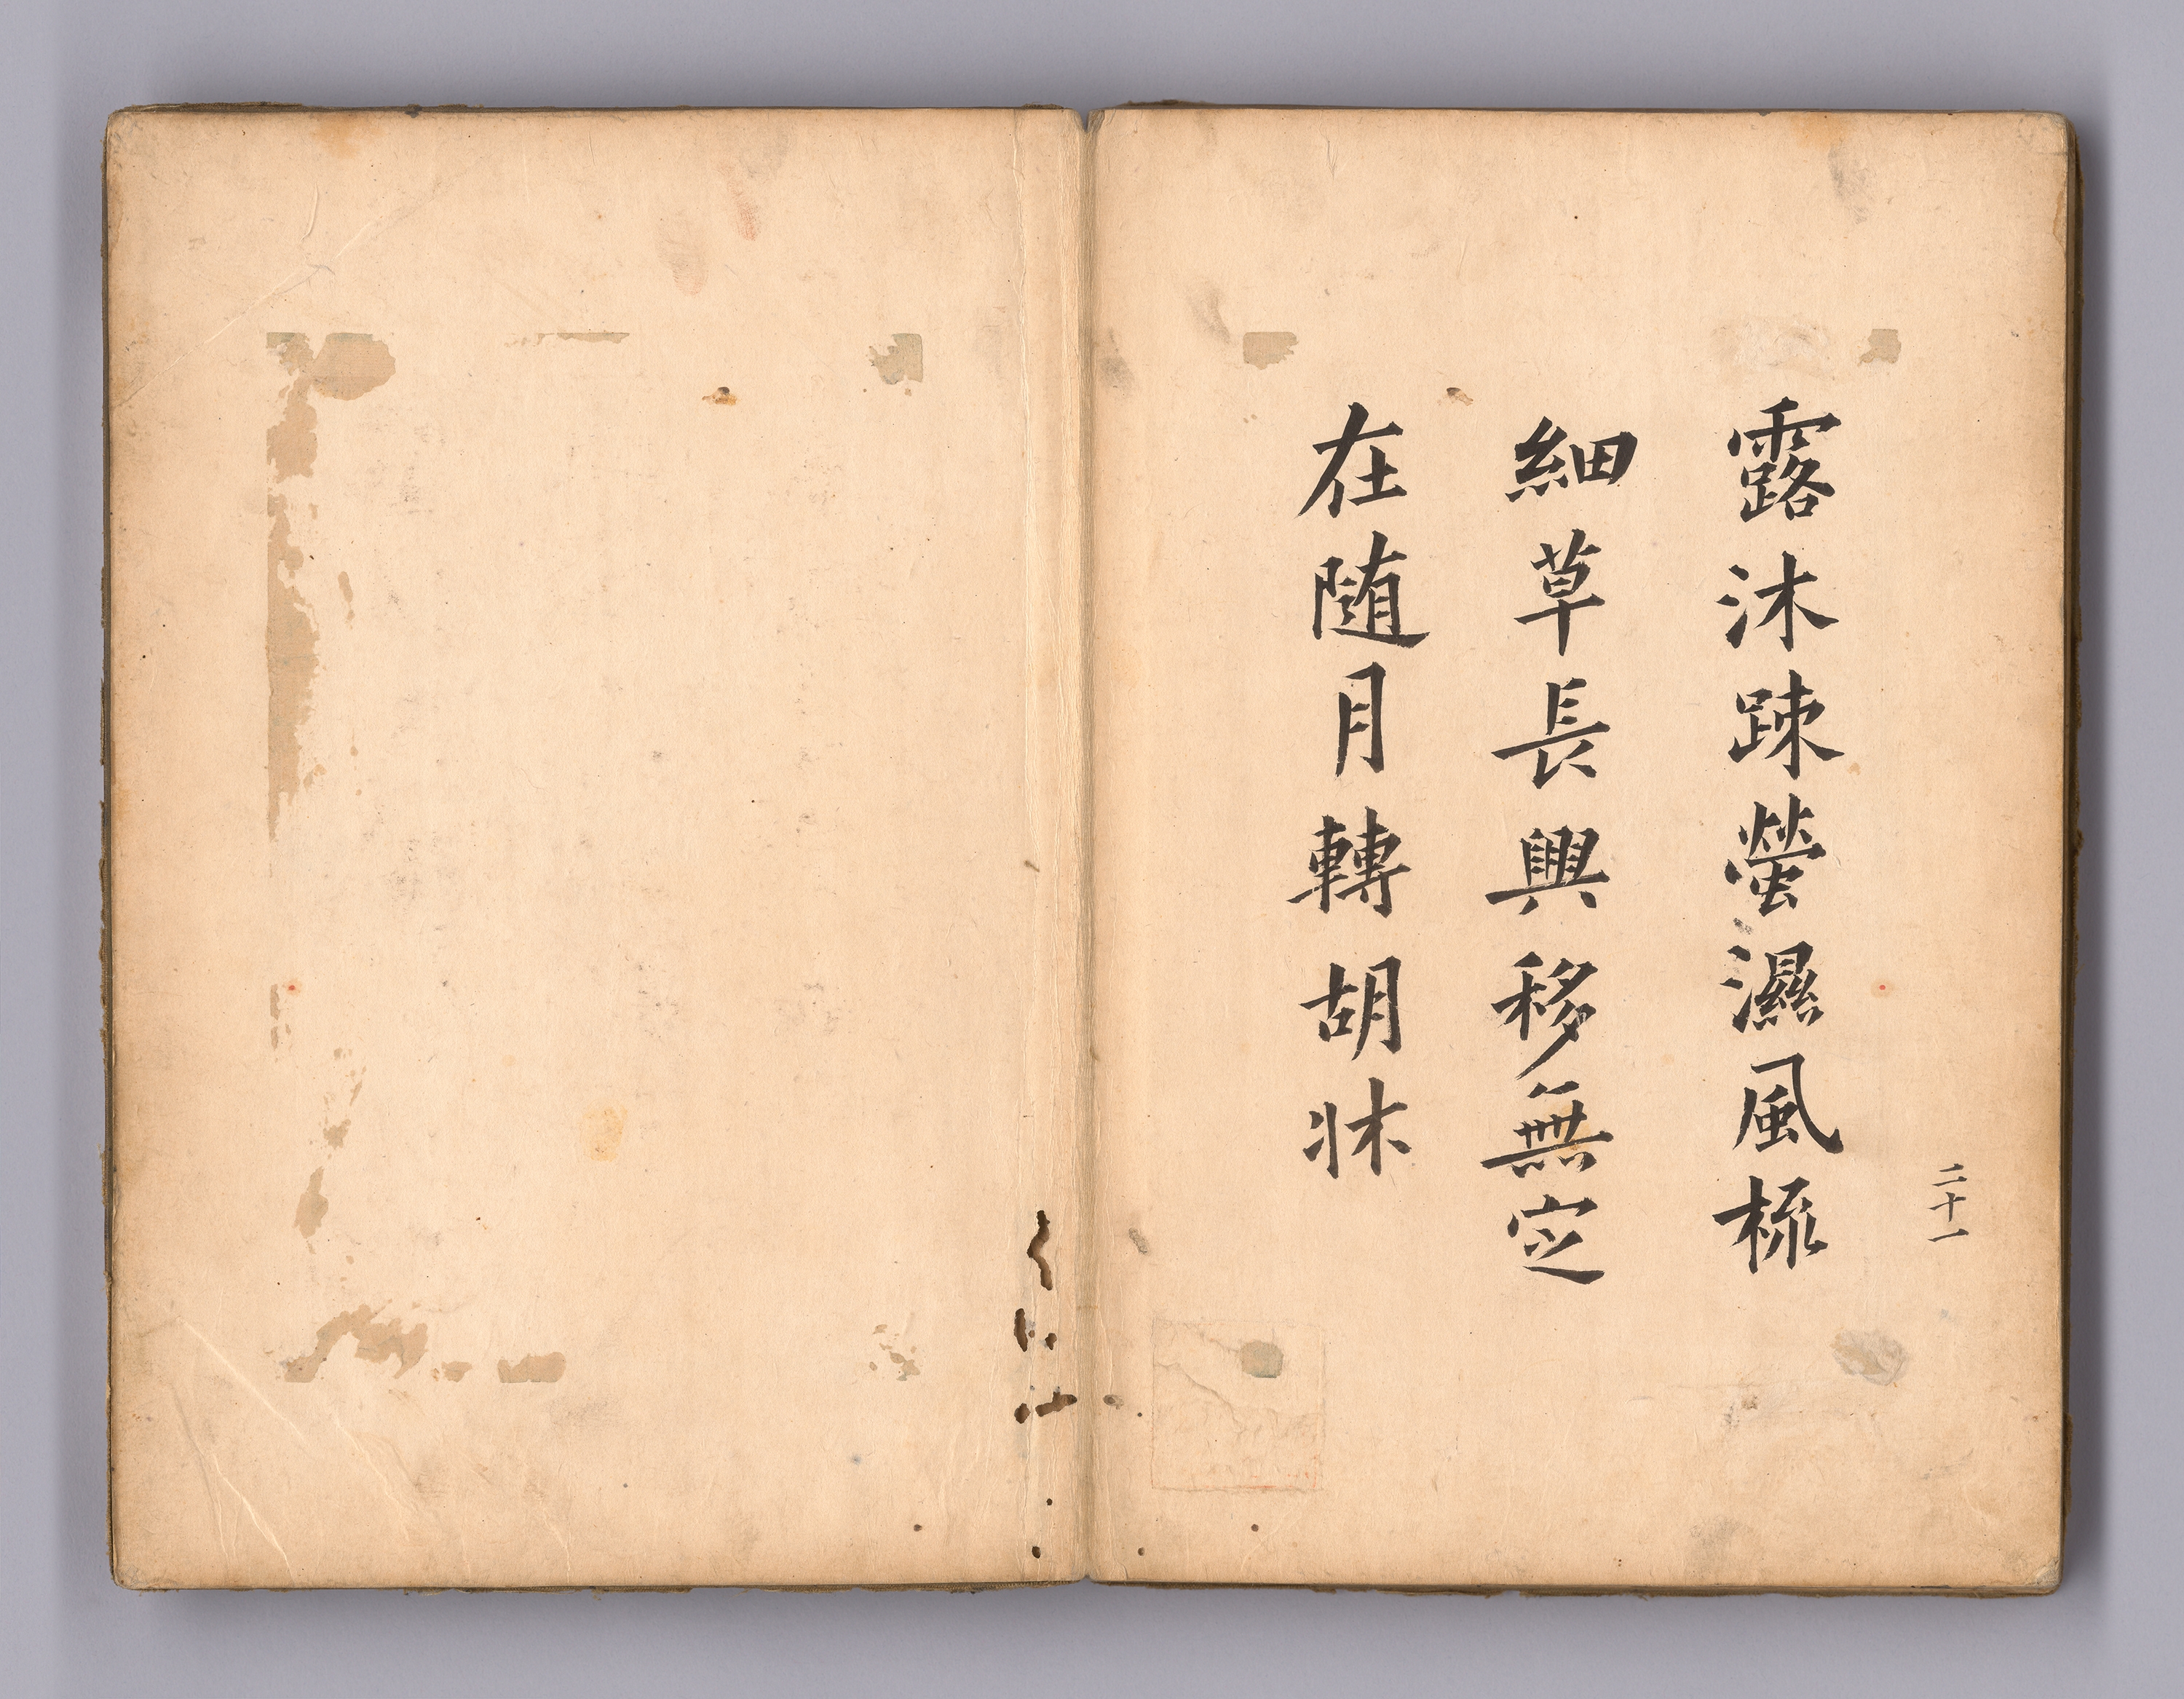 二十一
露沐踈螢濕風梳
細草長興移無定
在随月轉胡牀